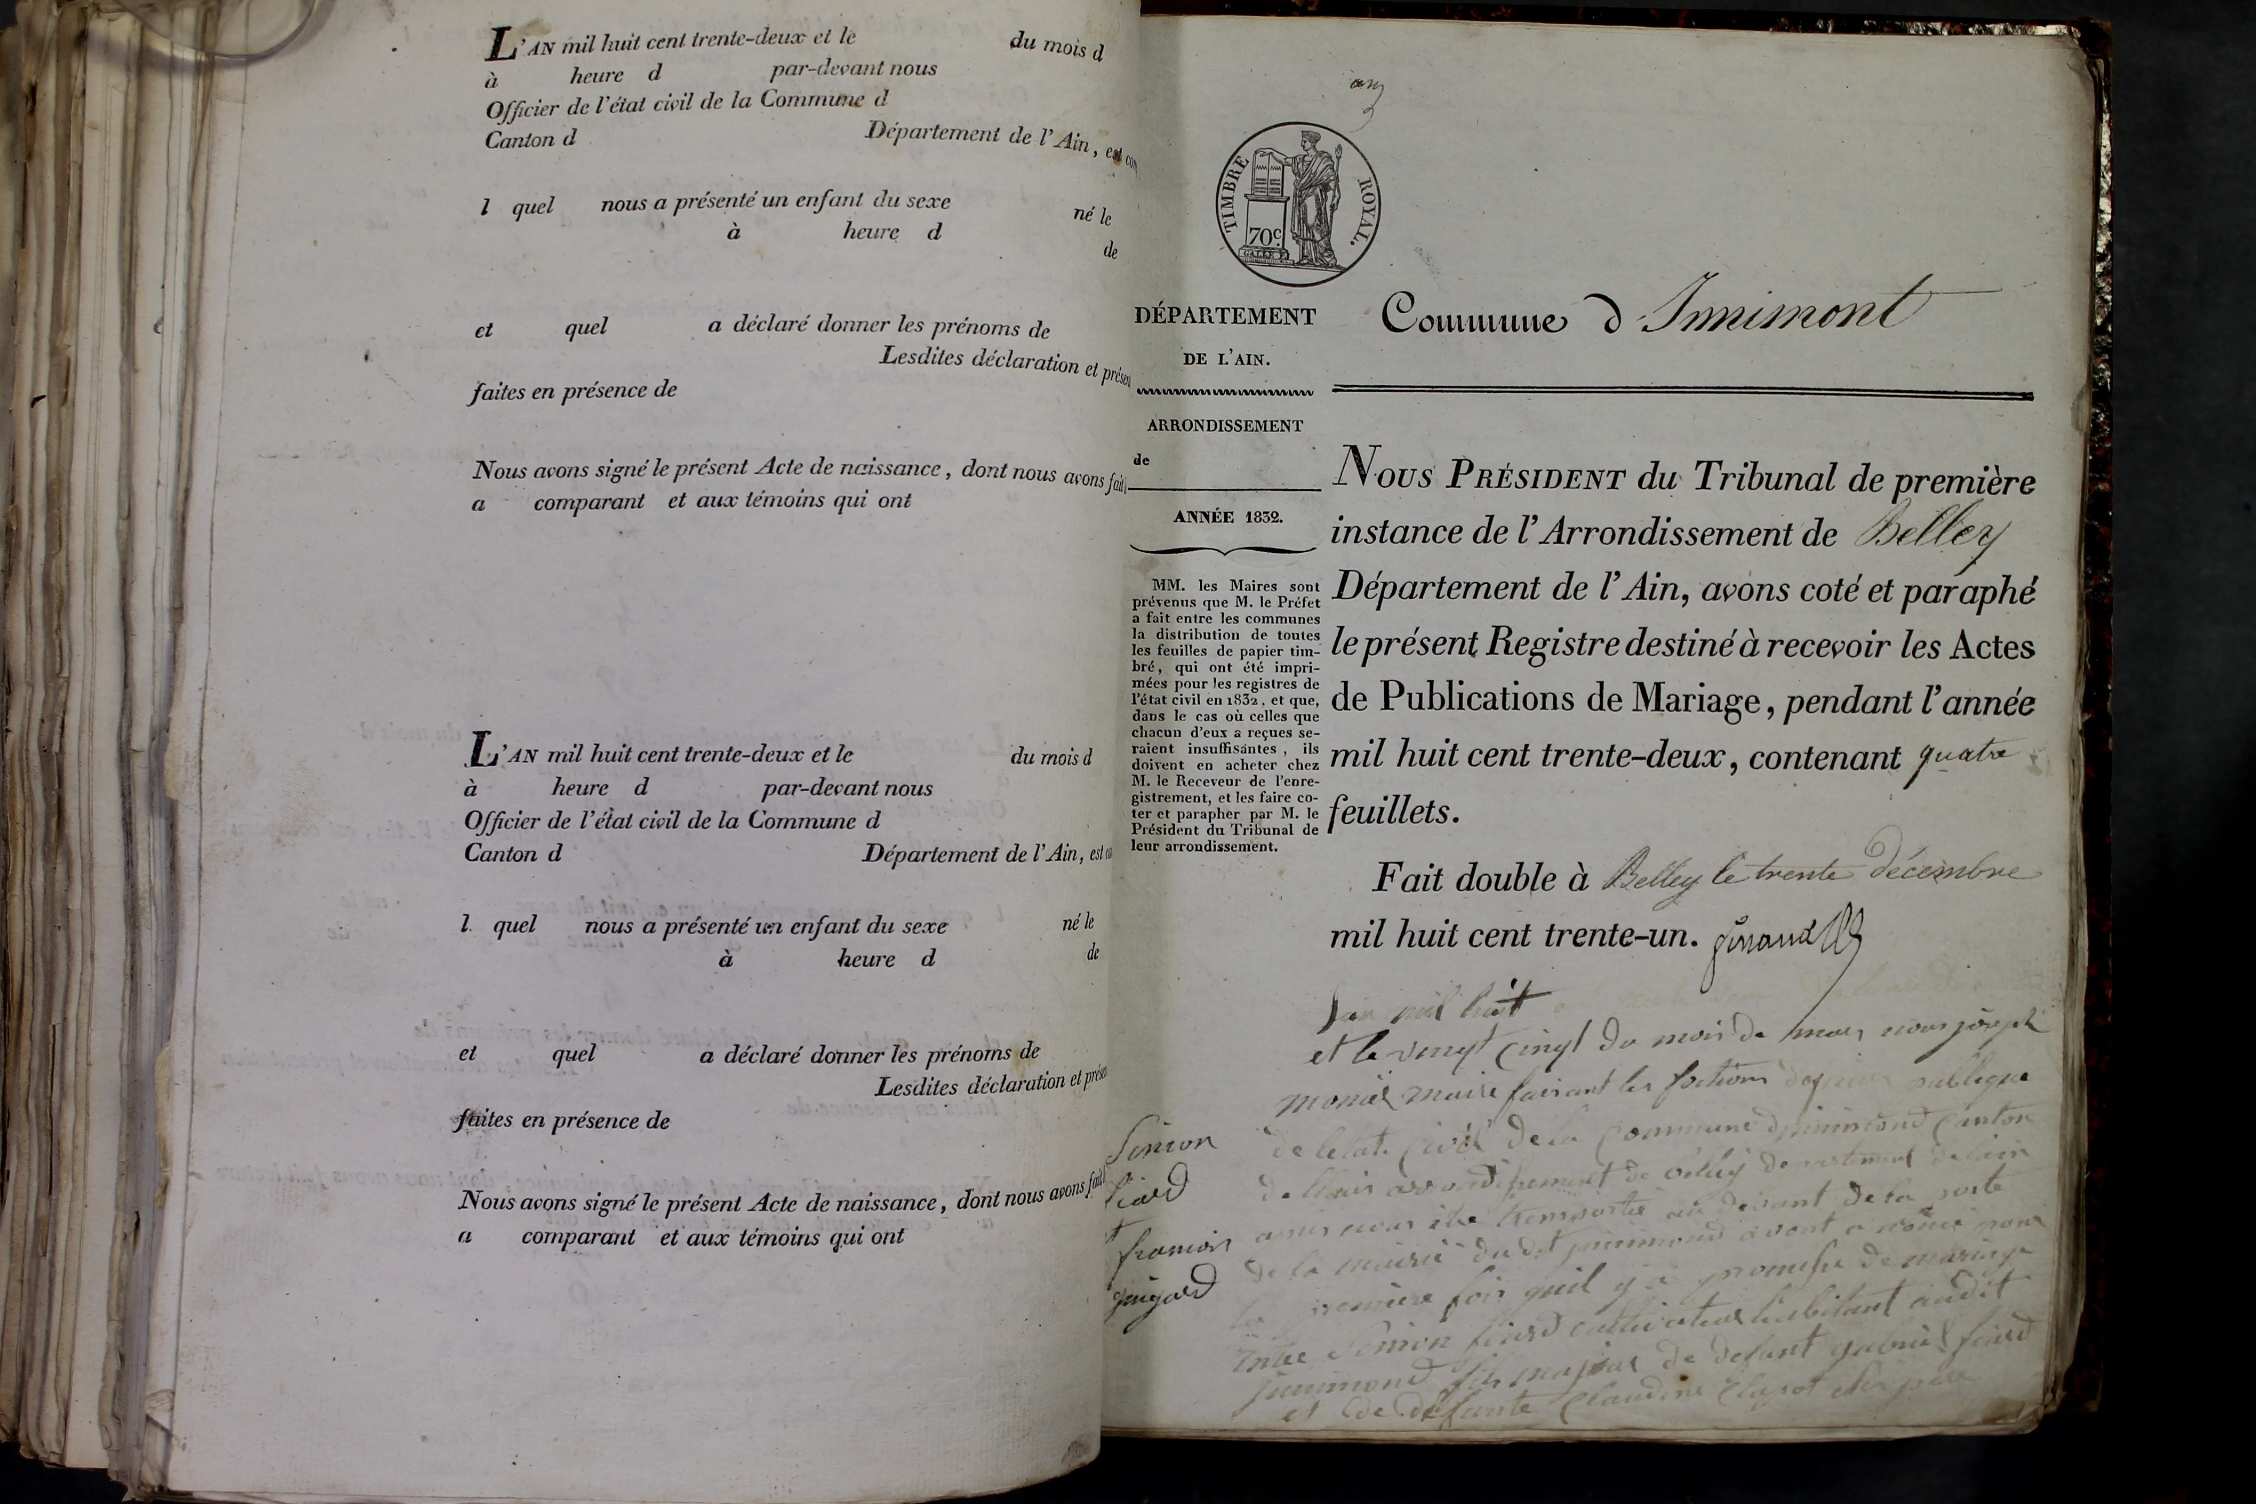 L'AN mil huit cent trente-deux et le du mois d
à heure d par-devant nous
Officier de l'état civil de la Commune d
Canton d Département de l'Ain, est com
l quel nous a présenté un enfant du sexe né le
à heure d de
et quel a déclaré donner les prénoms de
Lesdites déclaration et présen
faites en présence de
Nous avons signé le présent Acte de naissance, dont nous avons fait
a comparant et aux témoins qui ont
L'AN mil huit cent trente-deux et le du mois d
à heure d par-devant nous
Officier de l'état civil de la Commune d
Canton d Département de l'Ain, est co
l quel nous a présenté un enfant du sexe né le
à heure d de
et quel a déclaré donner les prénoms de
Lesdites déclaration et présen
faites en présence de
Nous avons signé le présent Acte de naissance, dont nous avons fait
a comparant et aux témoins qui ont
TIMBRE ROYAL.
70c
DÉPARTEMENT
DE L'AIN.
ARRONDISSEMENT
de
ANNÉE 1832.
MM. les Maires sont
prévenus que M. le Préfet
a fait entre les communes
la distribution de toutes
les feuilles de papier tim-
bré, qui ont été impri-
mées pour les registres de
l'état civil en 1832, et que,
dans le cas où celles que
chacun d'eux a reçues se-
raient insuffisantes, ils
doivent en acheter chez
M. le Receveur de l'enre-
gistrement, et les faire co-
ter et parapher par M. le
Président du Tribunal de
leur arrondissement.
Commune d Innimont
NOUS PRÉSIDENT du Tribunal de première
instance de l'Arrondissement de Belley
Département de l'Ain, avons coté et paraphé
le présent Registre destiné à recevoir les Actes
de Publications de Mariage, pendant l'année
mil huit cent trente-deux, contenant quatre
feuillets.
Fait double à Belley le trente décembre
mil huit cent trente-un.
Simon
francois
guigard
Lan mil huit
et le vingt cinq du mois de mars nous joseph
monier maire faisant les foctions publique
de letat civil de la commune dinnimond canton
arrondissement de belley departement de lain
apres nous etre transportée au devant de la porte
de la mairie dudit innimond avont annoncé pour
la premiere fois quil y a promesse de mariage
entre Simon cultivateur habitant audit
innimond fils majeur de defunt gabriel
et de defunte Claudine